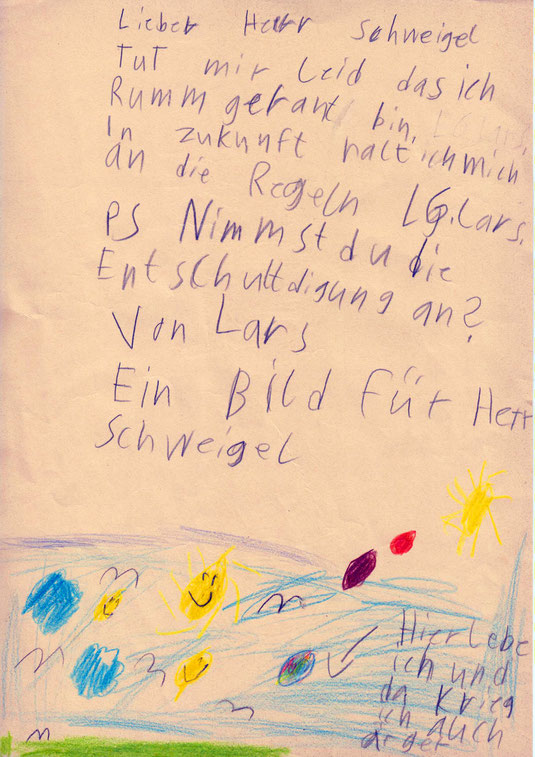 Lieber Herr Schweigel
Tut mir leid das ich
Rumm gerant bin.
In zukunft halt ich mich
an die Regeln LG. Lars.
PS Nimmst du die
Entschultdigung an?
Von Lars
Ein Bild für Herr
Schweigel
Hier lebe
ich und
da krieg
ich auch
ärger